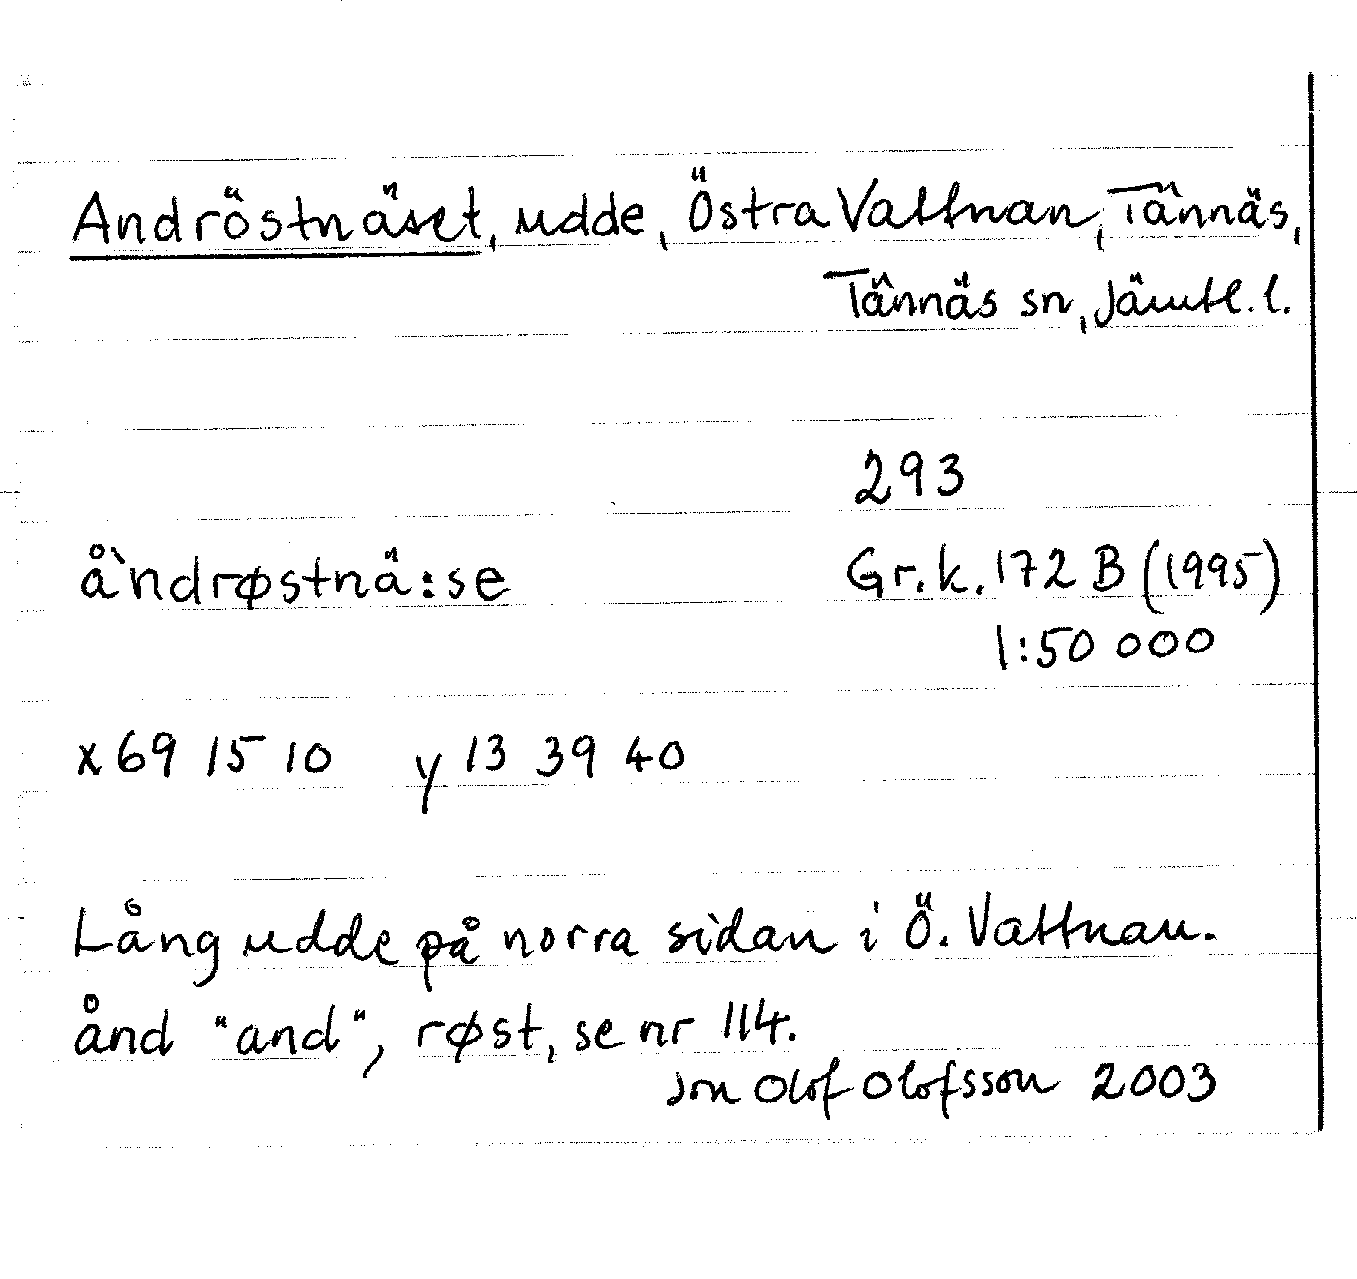 Andröstnäset, udde, Östra Vattnan, Tännäs,
Tännäs sn, Jämtl. l.
293
å̀ndrøstnä:se Gr.k. 172 B (1995)
1:50 000
x 69 15 10 y 13 39 40
Lång udde på norra sidan i Ö. Vattnan.
ånd "and", røst, se nr 114.
Jon Olof Olofsson 2003